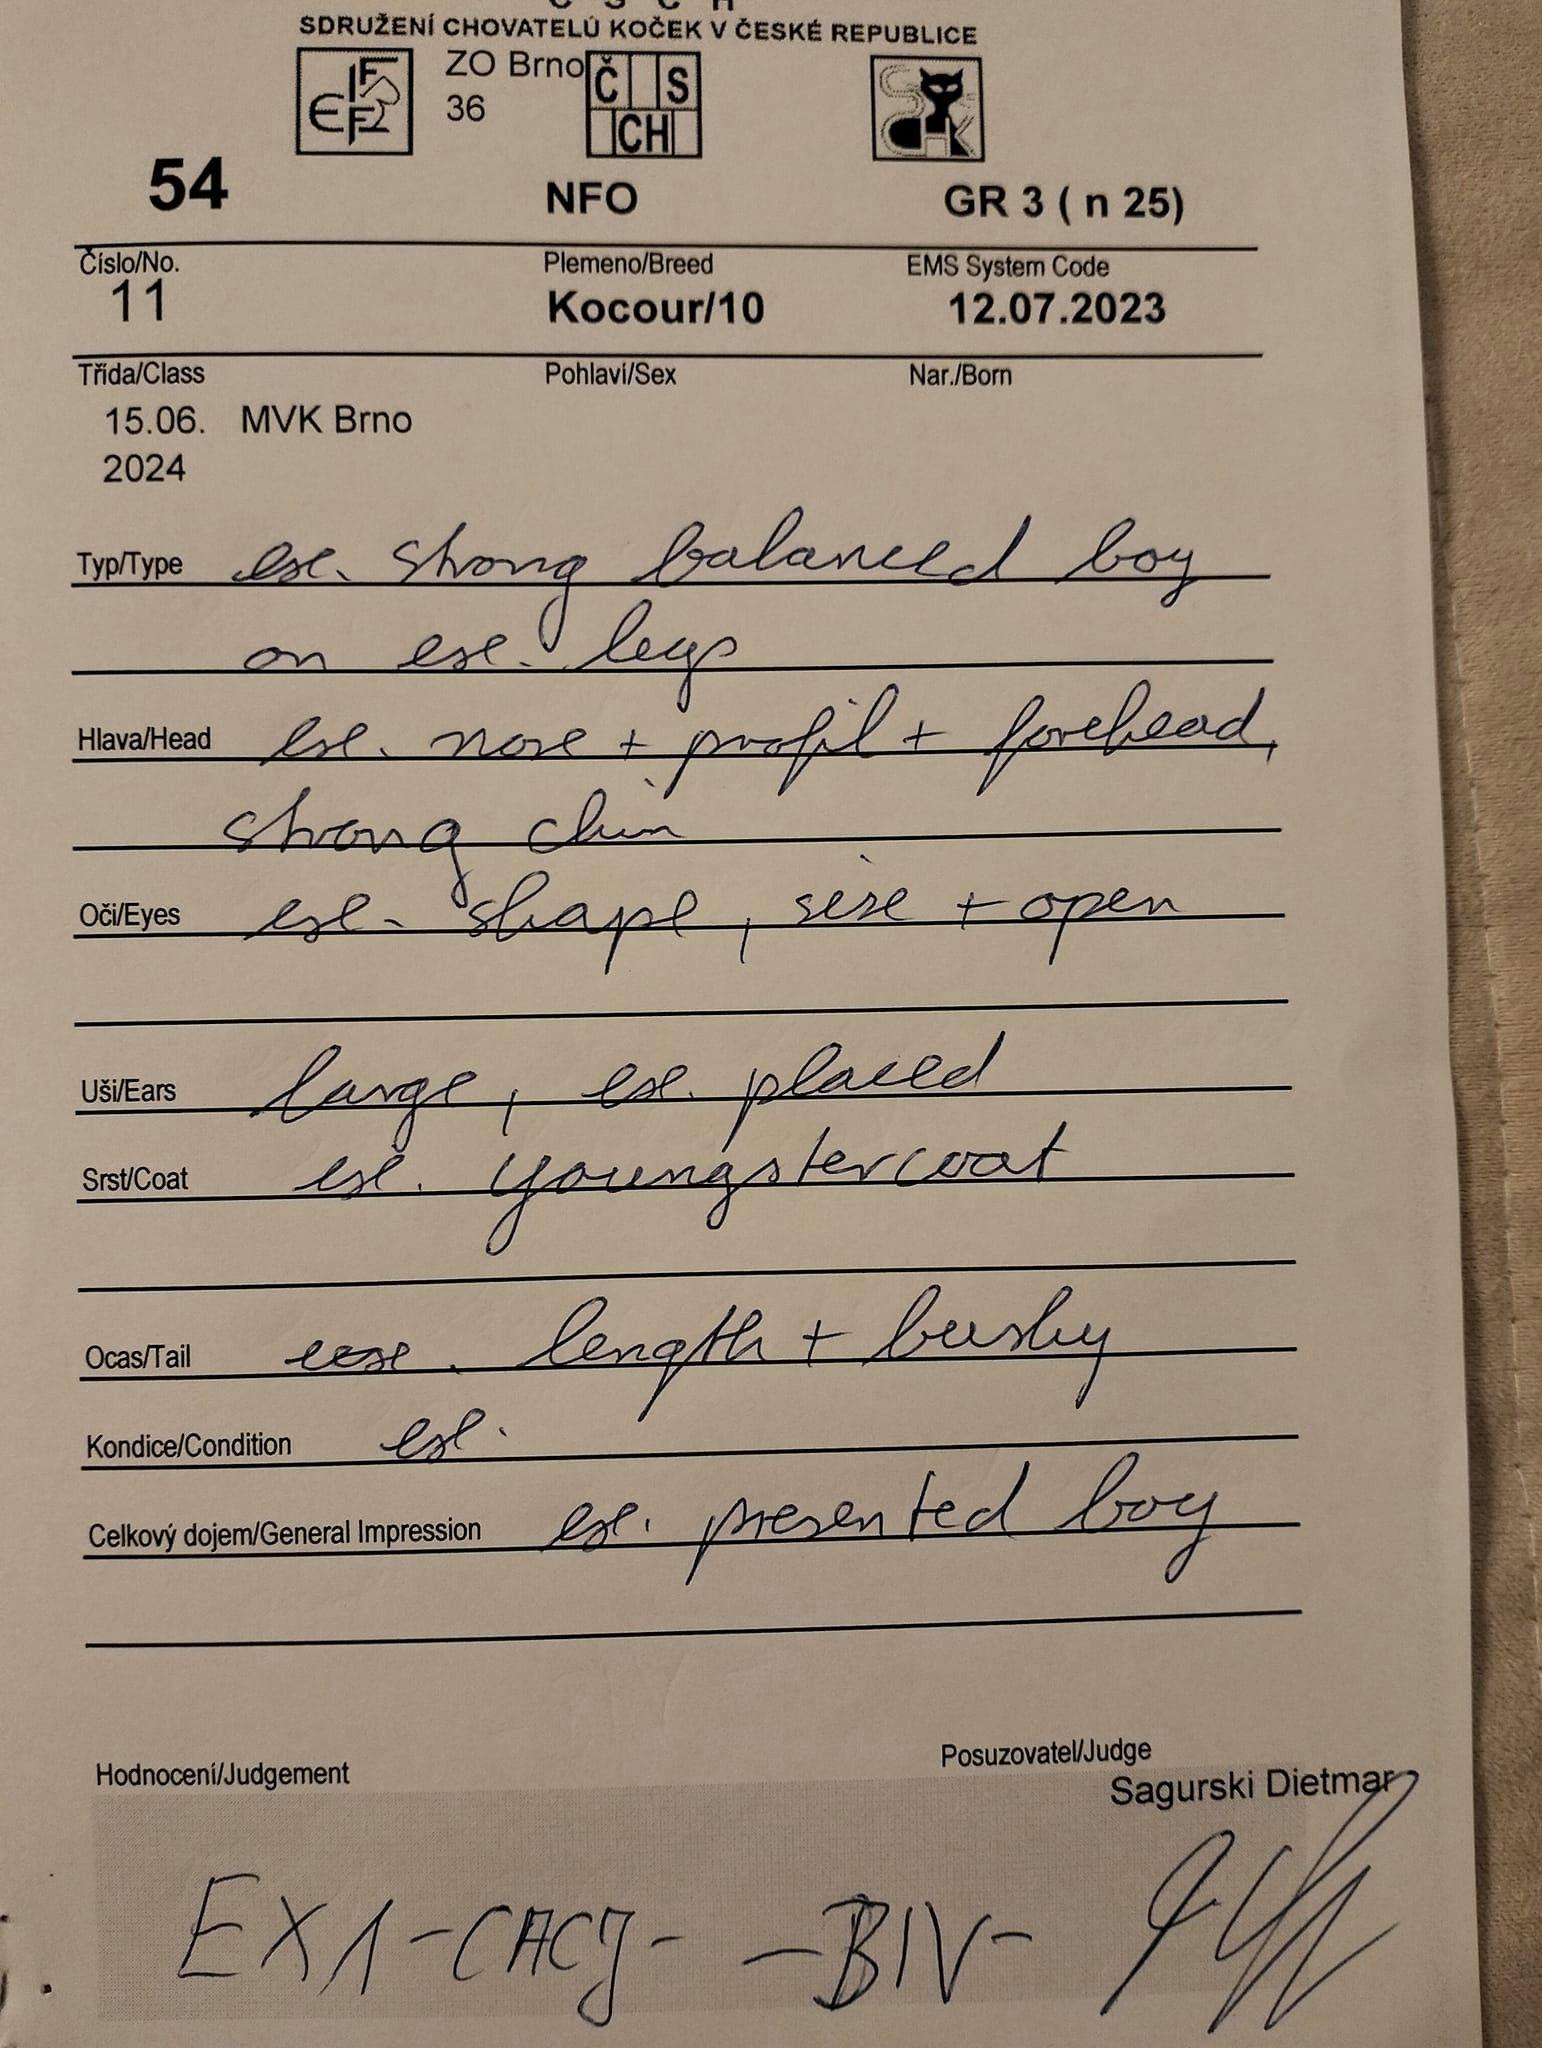 SDRUŽENÍ CHOVATELŮ KOČEK V ČESKÉ REPUBLICE
FIFe
ZO Brno
36
Č S CH
SCHK
54 NFO GR 3 ( n 25)
Číslo/No. Plemeno/Breed EMS System Code
11 Kocour/10 12.07.2023
Třída/Class Pohlaví/Sex Nar./Born
15.06. MVK Brno
2024
Typ/Type exc. strong balanced boy
on exc. legs
Hlava/Head exc. nose + profil + forehead,
strong chin
Oči/Eyes exc. shape, size + open
Uši/Ears large, exc. placed
Srst/Coat exc. youngstercoat
Ocas/Tail exc. length + bushy
Kondice/Condition exc.
Celkový dojem/General Impression exc. presented boy
Hodnocení/Judgement Posuzovatel/Judge
Sagurski Dietmar
EX 1 - CACJ - - BIV -